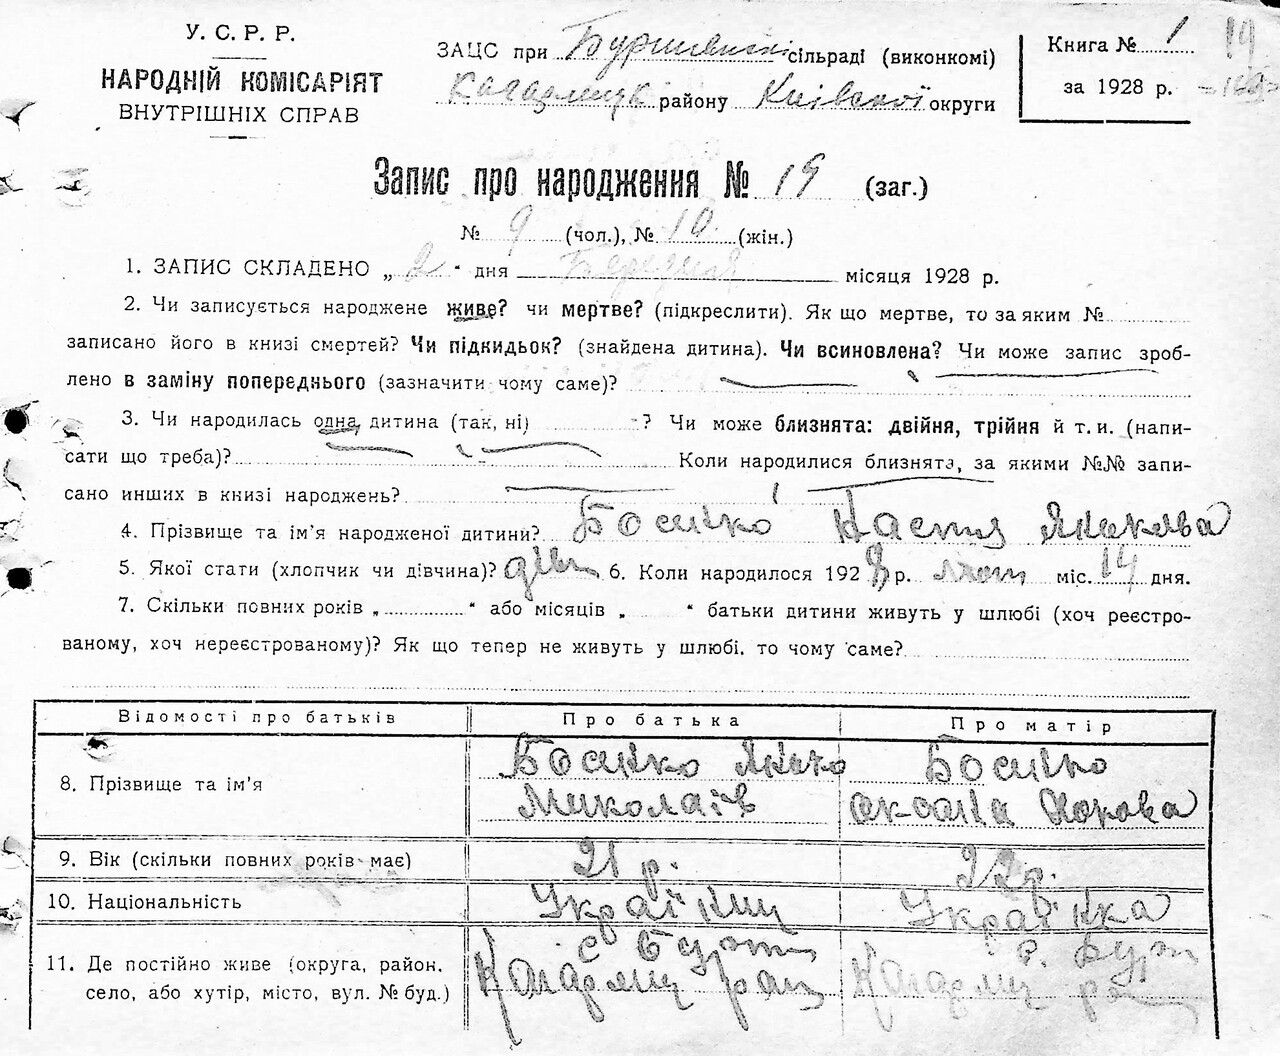 У. С. Р. Р.
НАРОДНІЙ КОМІСАРІЯТ
ВНУТРІШНІХ СПРАВ
ЗАЦС при сільраді (виконкомі)
Кагарлицьк району Київської округи
Книга № 1
за 1928 р.
19
Запис про народження № 19 (заг.)
№ 9 (чол.), № 10 (жін.)
1. ЗАПИС СКЛАДЕНО „ 2 “ дня Березня місяця 1928 р.
2. Чи записується народжене живе? чи мертве? (підкреслити). Як що мертве, то за яким №
записано його в книзі смертей? Чи підкидьок? (знайдена дитина). Чи всиновлена? Чи може запис зроб-
лено в заміну попереднього (зазначити чому саме)?
3. Чи народилась одна дитина (так, ні) ? Чи може близнята: двійня, трійня й т. и. (напи-
сати що треба)? Коли народилися близнята, за якими №№ запи-
сано инших в книзі народжень?
4. Прізвище та ім’я народженої дитини? Босико Настя Якикова
5. Якої стати (хлопчик чи дівчина)? дівч 6. Коли народилося 1928 р. лют міс. 14 дня.
7. Скільки повних років „ “ або місяців „ “ батьки дитини живуть у шлюбі (хоч реєстро-
ваному, хоч нереєстрованому)? Як що тепер не живуть у шлюбі, то чому саме?
Відомості про батьків Про батька Про матір
8. Прізвище та ім’я
Миколаїв
Оксана
9. Вік (скільки повних років має) 21 р. 22 р.
10. Національність Україниц Українка
11. Де постійно живе (округа, район,
село, або хутір, місто, вул. № буд.)
Кагарлиц рай
Кагарлиц ра